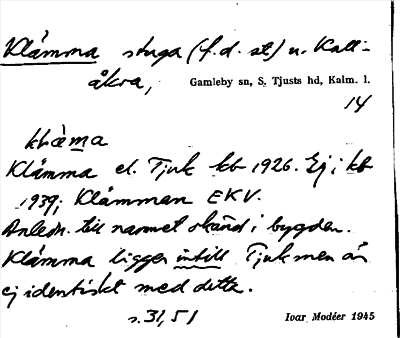 Klämma stuga (f.d. st) u. Kall-
åkra,
Gamleby sn, S. Tjusts hd, Kalm. l.
14
klæ̀ma
Klämma el. Tjuk kb 1926. Ej i kb
1939; Klämman EKV.
Anledn. till namnet okänd i bygden.
Klämma ligger intill Tjuk men är
ej identiskt med dette.
s. 31, 51
Ivar Modéer 1945